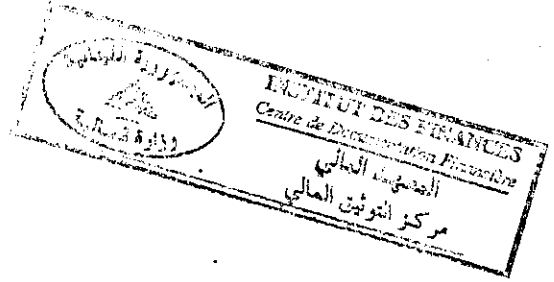 الجمهورية اللبنانية
وزارة المالية
INSTITUT DES FINANCES
Centre de Documentation Financière
المعهد المالي
مركز التوثيق المالي